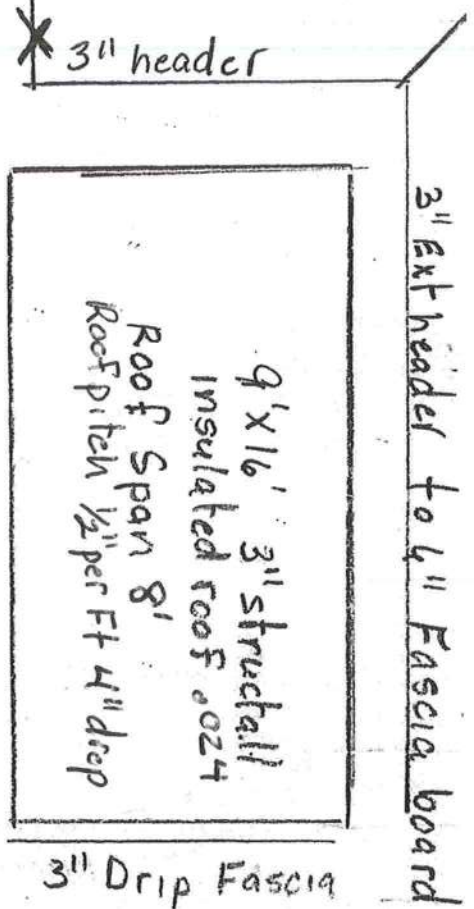 3" header
3" Ext header to 4" Fascia board
9'x16' 3" structall
insulated roof .024
Roof Span 8'
Roof pitch 1/2" per Ft 4" drop
3" Drip Fascia